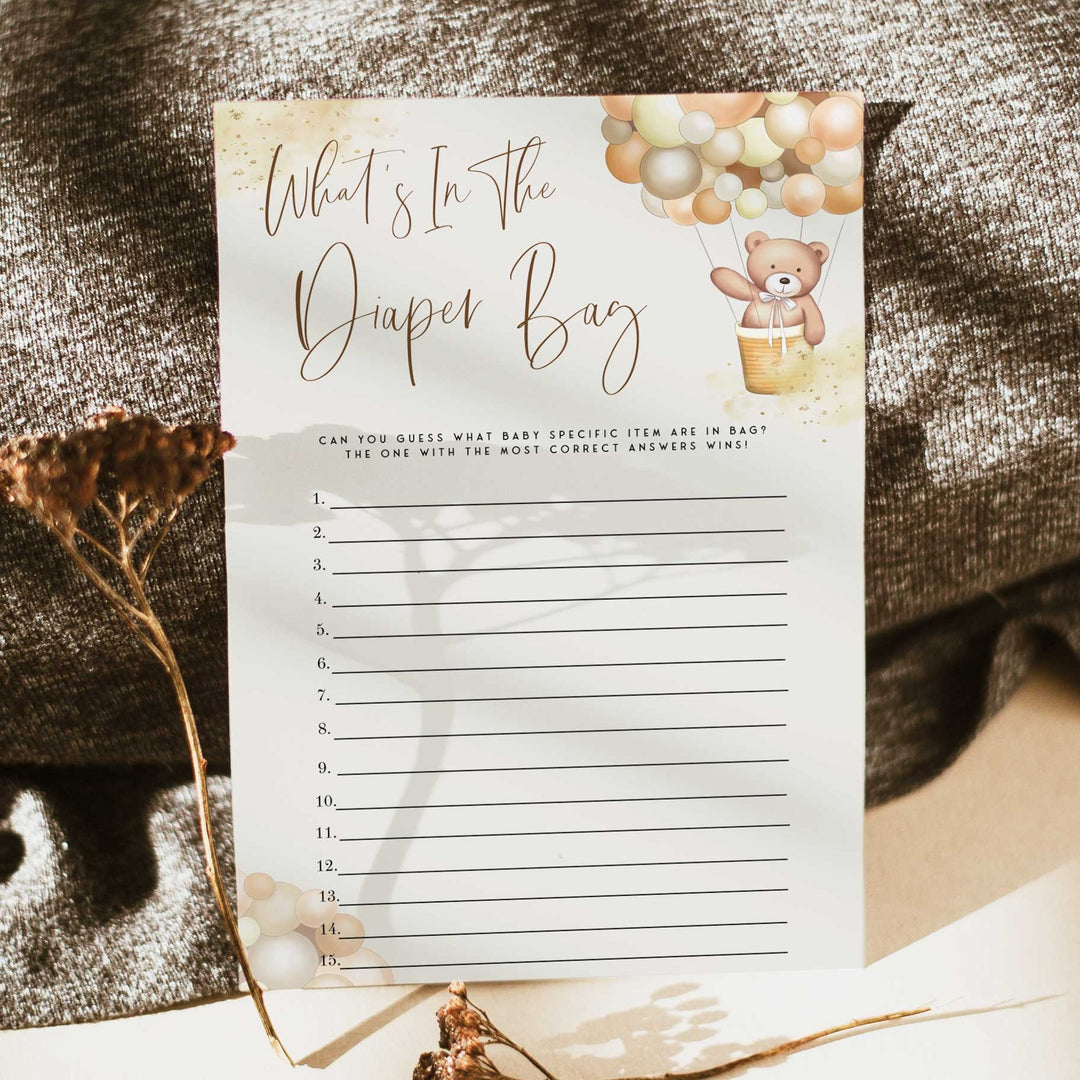 What's In The
Diaper Bag
CAN YOU GUESS WHAT BABY SPECIFIC ITEM ARE IN BAG?
THE ONE WITH THE MOST CORRECT ANSWERS WINS!
1.
2.
3.
4.
5.
6.
7.
8.
9.
10.
11.
12.
13.
14.
15.